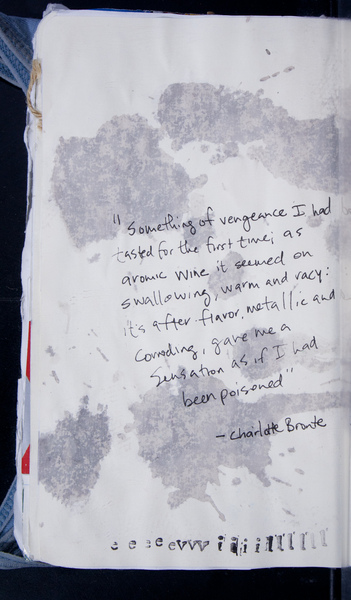 "Something of vengeance I had
tasted for the first time; as
aromic wine it seemed on
swallowing, warm and racy:
it's after-flavor, metallic and
corroding, gave me a
Sensation as if I had
been poisoned"
- Charlotte Bronte
e e e e e v v v i i i i i l l l l l l